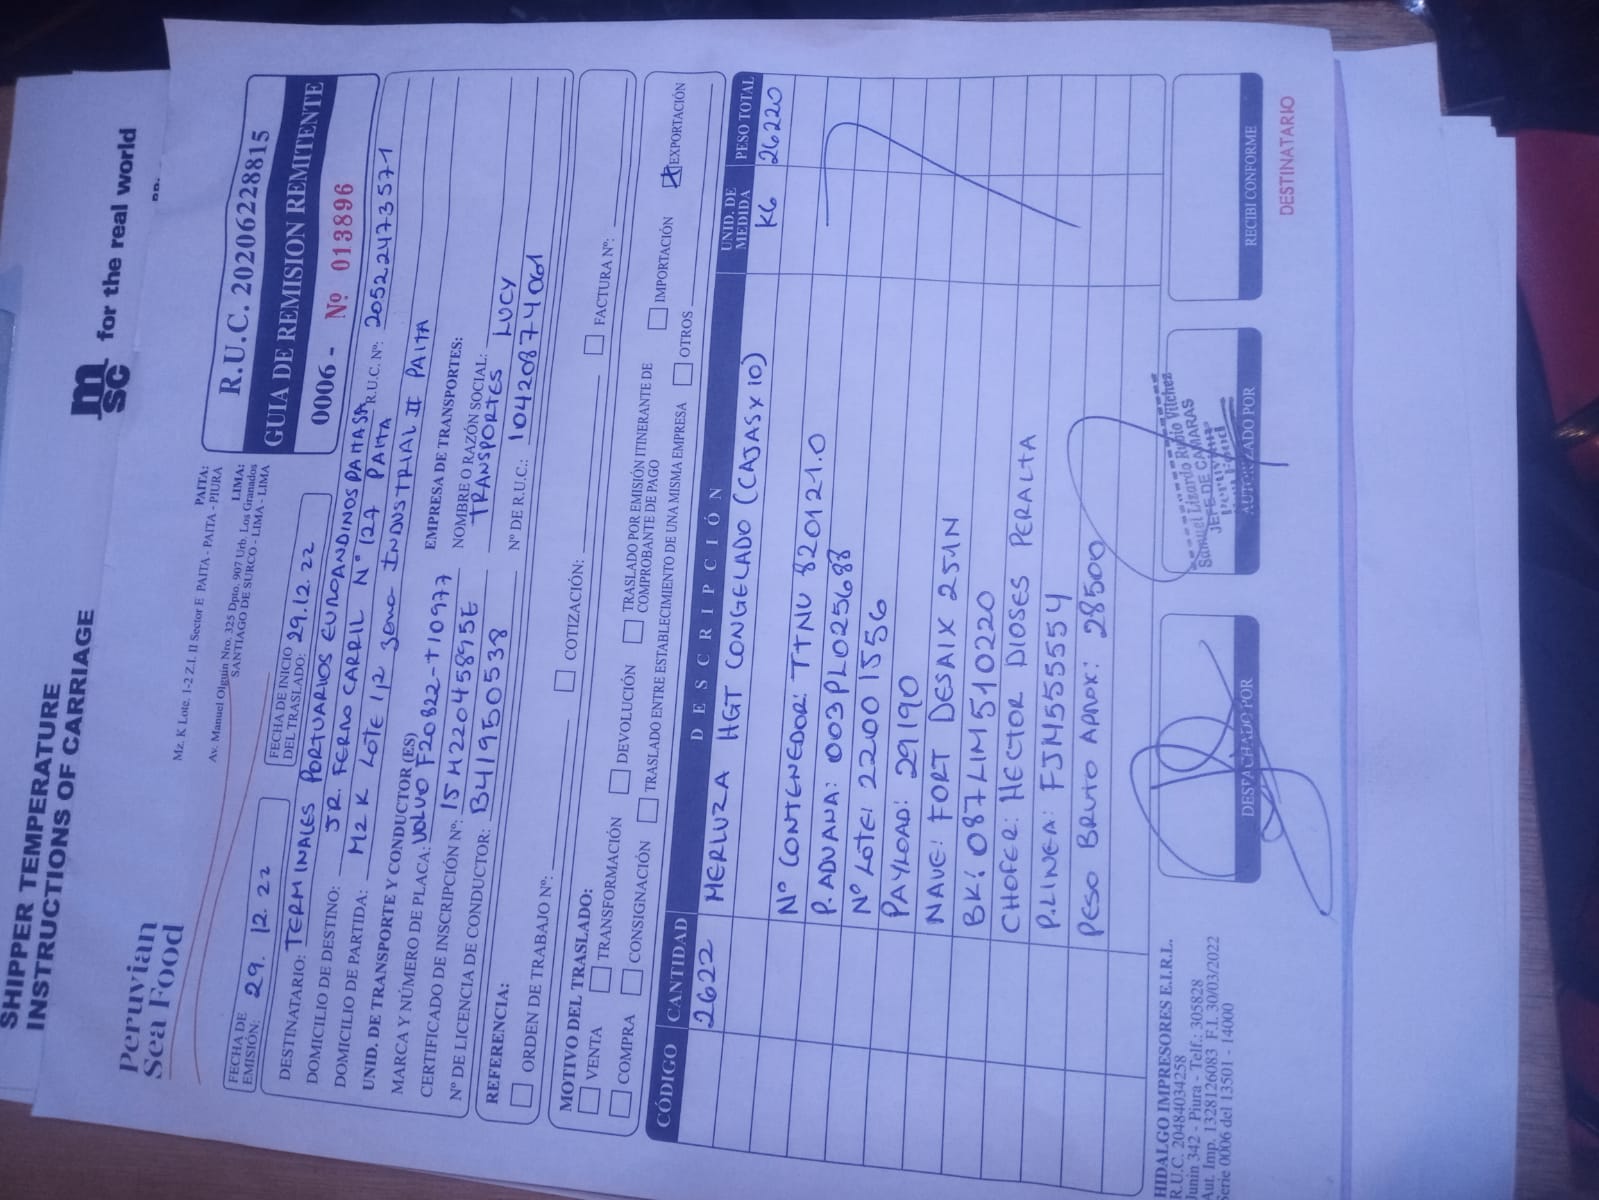 SHIPPER TEMPERATURE
INSTRUCTIONS OF CARRIAGE
msc for the real world
Peruvian
Sea Food
PAITA:
Mz. K Lote. 1-2 Z.I. II Sector E PAITA - PAITA - PIURA
LIMA:
Av. Manuel Olguin Nro. 325 Dpto. 907 Urb. Los Granados
SANTIAGO DE SURCO - LIMA - LIMA
R.U.C. 20206228815
GUIA DE REMISION REMITENTE
0006 - Nº 013896
FECHA DE EMISIÓN: 29. 12. 22
FECHA DE INICIO DEL TRASLADO: 29.12.22
DESTINATARIO: TERMINALES PORTUARIOS EUROANDINOS PAITA SA R.U.C. Nº: 20522473571
DOMICILIO DE DESTINO: JR. FERRO CARRIL N° 127 PAITA
DOMICILIO DE PARTIDA: MZ K LOTE 1,2 ZONA INDUSTRIAL II PAITA
UNID. DE TRANSPORTE Y CONDUCTOR (ES)
MARCA Y NÚMERO DE PLACA: VOLVO F20822-T10977
CERTIFICADO DE INSCRIPCIÓN Nº: 15M22045895E
Nº DE LICENCIA DE CONDUCTOR: B41950538
EMPRESA DE TRANSPORTES:
NOMBRE O RAZÓN SOCIAL:
TRANSPORTES LUCY
Nº DE R.U.C.: 10420874061
REFERENCIA:
ORDEN DE TRABAJO Nº:
COTIZACIÓN:
FACTURA Nº:
MOTIVO DEL TRASLADO:
VENTA
TRANSFORMACIÓN
DEVOLUCIÓN
TRASLADO POR EMISIÓN ITINERANTE DE
COMPROBANTE DE PAGO
IMPORTACIÓN
EXPORTACIÓN
COMPRA
CONSIGNACIÓN
TRASLADO ENTRE ESTABLECIMIENTO DE UNA MISMA EMPRESA
OTROS
CÓDIGO CANTIDAD DESCRIPCIÓN UNID. DE MEDIDA PESO TOTAL
2622 MERLUZA HGT CONGELADO (CAJAS X 10) KG 26220
N° CONTENEDOR: TTNU 820121.0
P. ADUANA: 003PL0256
N° LOTE: 22001556
PAYLOAD: 29190
NAVE: FORT DESAIX 251N
BK: 087LIM510220
CHOFER: HECTOR DIOSES PERALTA
P.LINEA: FJM555554
PESO BRUTO APROX: 28500
DESPACHADO POR
Samuel Lizardo Rubio Vilchez
JEFE DE CAMARAS
AUTORIZADO POR
RECIBI CONFORME
HIDALGO IMPRESORES E.I.R.L.
R.U.C. 20484034258
Junín 342 - Piura - Telf.: 305828
Aut. Imp. 1328126083 F.I. 30/03/2022
Serie 0006 del 13501 - 14000
DESTINATARIO